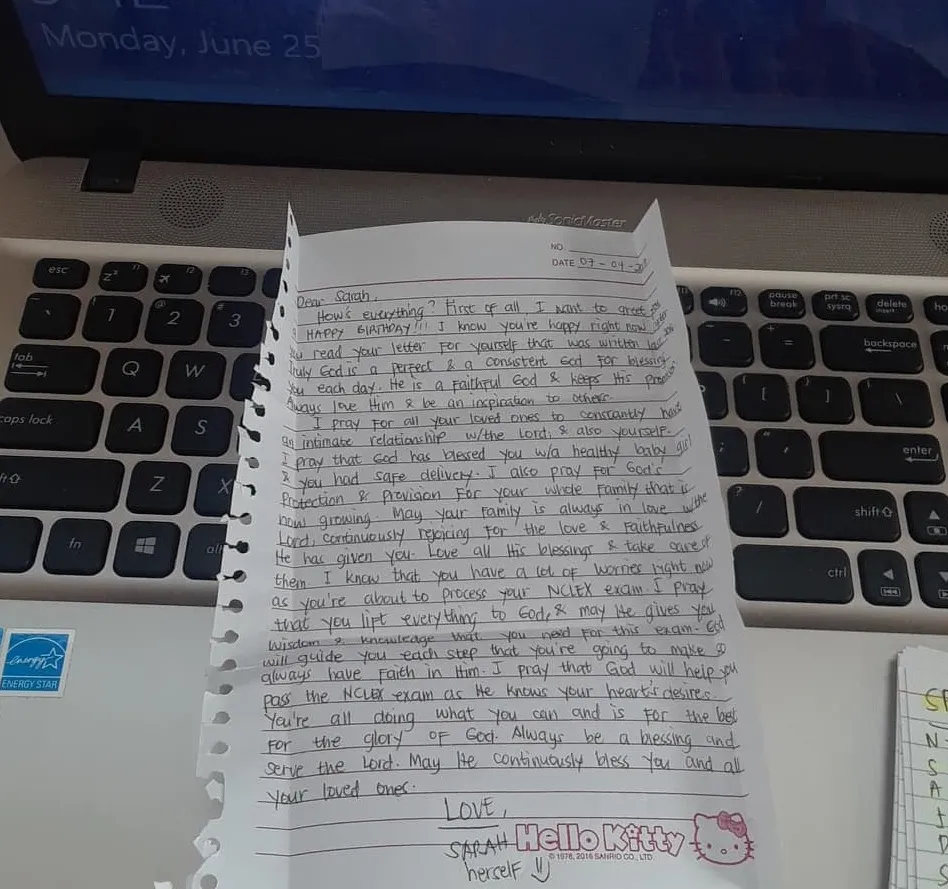 Monday, June 25
SonicMaster
esc
F1
F2
F3
F12
pause
break
prt sc
sysrq
delete
insert
1
2
3
backspace
tab
Q
W
caps lock
A
S
enter
Z
X
shift
fn
alt
ctrl
energy
ENERGY STAR
NO.
DATE 07-04-
Dear Sarah,
How's everything? First of all, I want to greet
HAPPY BIRTHDAY!!! I know you're happy right now
you read your letter for yourself that was written
Truly God is a perfect & a consistent God for blessing
you each day. He is a faithful God & keeps His
Always love Him & be an inspiration to others.
I pray for all your loved ones to constantly have
an intimate relationship w/the Lord, & also yourself.
I pray that God has blessed you w/a healthy baby girl
& you had safe delivery. I also pray for God's
Protection & Provision for your whole family that is
now growing. May your family is always in love w/the
Lord, continuously rejoicing for the love & Faithfulness
He has given you. Love all His blessings & take care of
them. I know that you have a lot of worries right now
as you're about to process your NCLEX exam. I pray
that you lift everything to God, & may He gives you
wisdom & knowledge that you need for this exam. God
will guide you each step that you're going to make so
always have faith in Him. I pray that God will help you
pass the NCLEX exam as He knows your heart's desires.
You're all doing what you can and is for the best
for the glory of God. Always be a blessing and
serve the Lord. May He continuously bless you and all
your loved ones.
LOVE,
SARAH
herself
Hello Kitty
© 1976, 2016 SANRIO CO., LTD.
SP
N
S
A
I
D
S